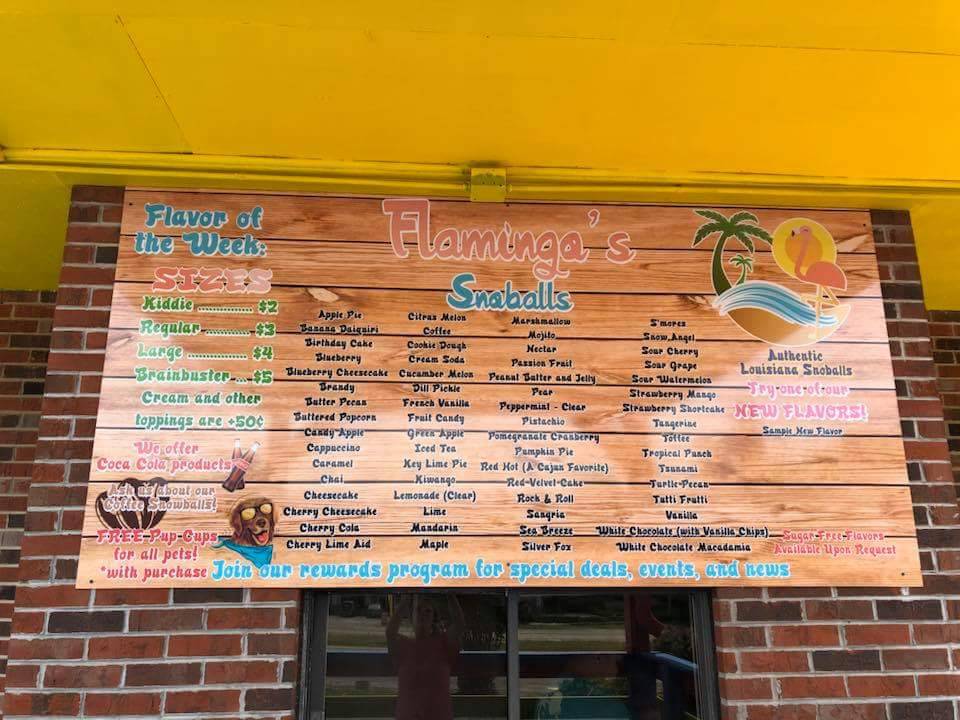 Flavor of
the Week:
SIZES
Kiddie .............. $2
Regular ............. $3
Large ................ $4
Brainbuster ... $5
Cream and other
toppings are +50¢
We offer
Coca Cola products
Ask us about our
Coffee Snowballs!
FREE Pup Cups
for all pets!
*with purchase
Flaminga's
Snaballs
Apple Pie
Banana Daiquiri
Birthday Cake
Blueberry
Blueberry Cheesecake
Brandy
Butter Pecan
Buttered Popcorn
Candy Apple
Cappuccino
Caramel
Chai
Cheesecake
Cherry Cheesecake
Cherry Cola
Cherry Lime Aid
Citrus Melon
Coffee
Cookie Dough
Cream Soda
Cucumber Melon
Dill Pickle
French Vanilla
Fruit Candy
Green Apple
Iced Tea
Key Lime Pie
Kiwango
Lemonade (Clear)
Lime
Mandarin
Maple
Marshmallow
Mojito
Nectar
Passion Fruit
Peanut Butter and Jelly
Pear
Peppermint - Clear
Pistachio
Pomegranate Cranberry
Pumpkin Pie
Red Hot (A Cajun Favorite)
Red-Velvet-Cake
Rock & Roll
Sangria
Sea Breeze
Silver Fox
S'morez
Snow Angel
Sour Cherry
Sour Grape
Sour Watermelon
Strawberry Mango
Strawberry Shortcake
Tangerine
Toffee
Tropical Punch
Tsunami
Turtle-Pecan
Tutti Frutti
Vanilla
White Chocolate (with Vanilla Chips)
White Chocolate Macadamia
Authentic
Louisiana Snoballs
Try one of our
NEW FLAVORS!
Sample New Flavor
Sugar Free Flavors
Available Upon Request
Join our rewards program for special deals, events, and news